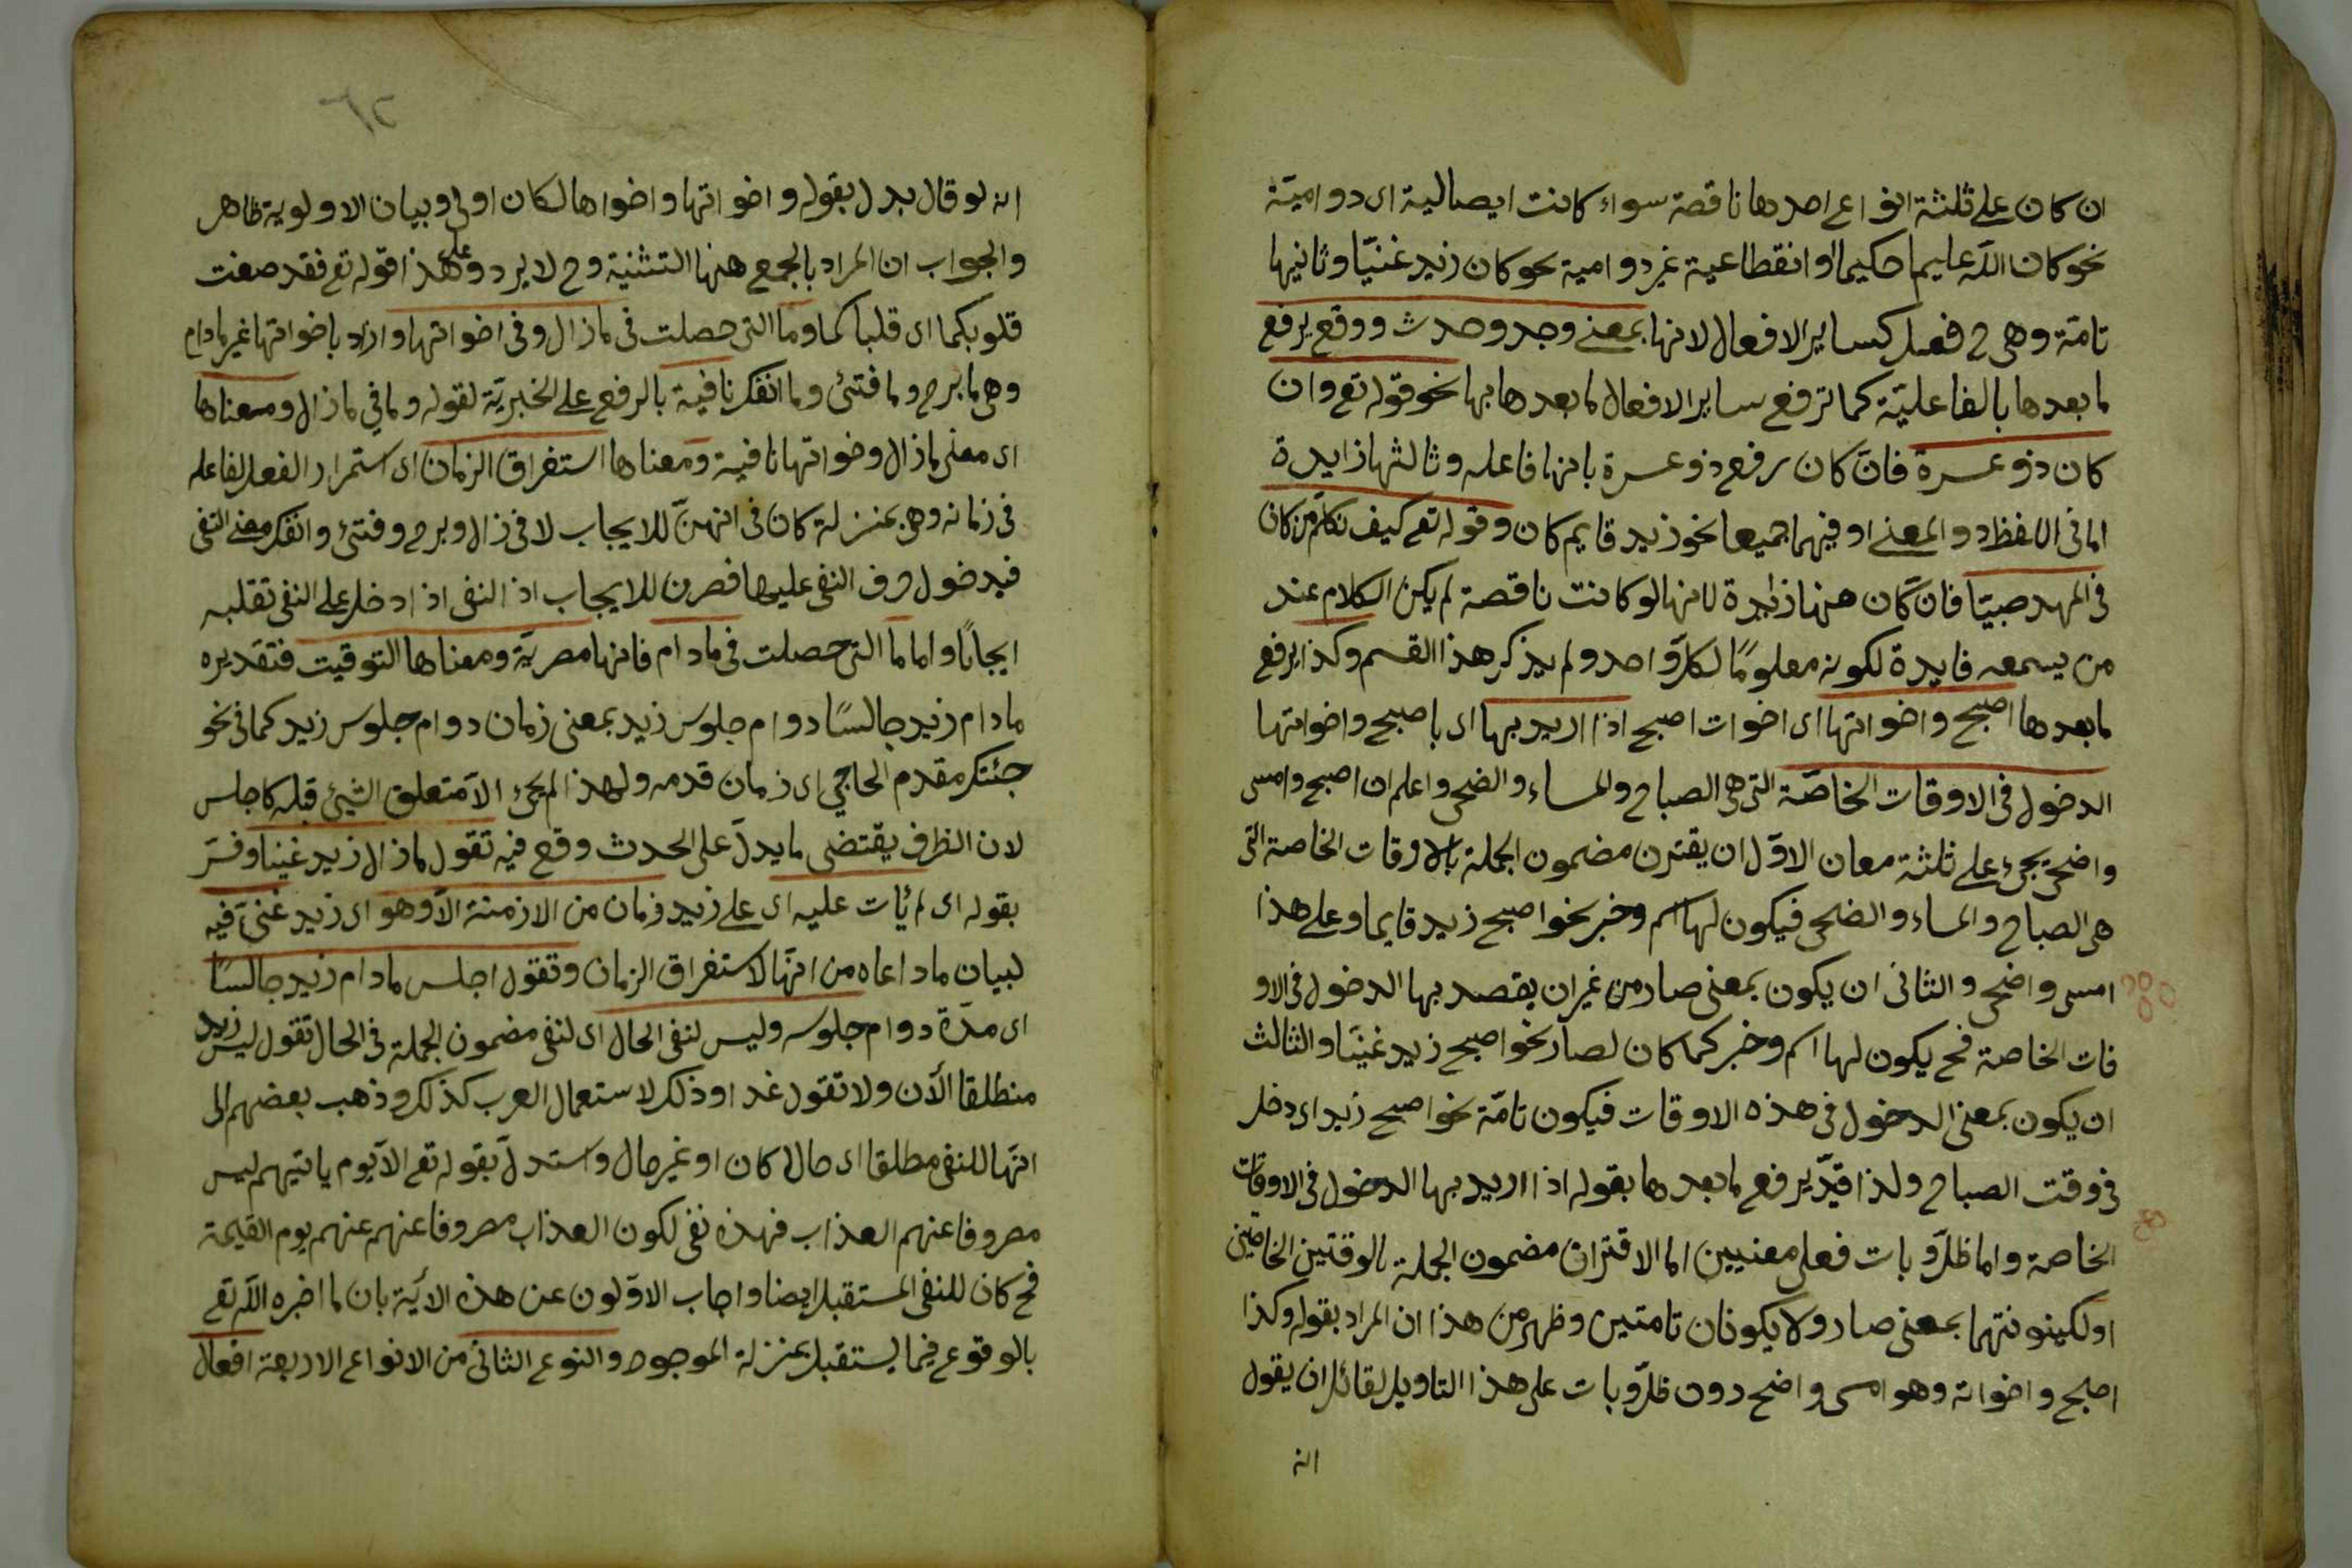 ان كان على ثلثة انواع احدها ناقصة سواء كانت ايصالية اى دوامية
نحو كان الله عليما حكيما او انقطاعية غير دوامية نحو كان زيد غنيّا وثانيها
تامّة وهى ح فعل كساير الافعال لانها بمعنى وجد وحدث ووقع يرفع
ما بعدها بالفاعليّة كما ترفع ساير الافعال ما بعدها بها نحو قوله تع وان
كان ذو عسرة فانّ كان يرفع ذو عسرة بانها فاعله وثالثها زايدة
اما فى اللفظ دو المعنى او فيهما جميعا نحو زيد قايم كان وقوله تع كيف نكلّم من كان
فى المهد صبيّا فانّ كان ههنا زايدة لانها لو كانت ناقصة لم يكن الكلام عند
من يسمعه فايدة لكونه معلومًا لكلّ واحد ولم يذكر هذا القسم وكذا يرفع
ما بعدها اصبح واخواتها اى اخوات اصبح اذا اريد بها اى باصبح واخواتها
الدخول فى الاوقات الخاصّة التى هى الصباح والمساء والضحى واعلم ان اصبح وامسى
واضحى يجئ على ثلثة معان الاوّل ان يقترن مضمون الجملة بالاوقات الخاصة التى
هى الصباح والمساء والضحى فيكون لها اسم وخبر نحو اصبح زيد قايما وعلى هذا
امسى واضحى والثانى ان يكون بمعنى صار من غير ان يقصد بها الدخول فى الاو
قات الخاصة فح يكون لها اسم وخبر كما كان لصار نحو اصبح زيد غنيّا والثالث
ان يكون بمعنى الدخول فى هذه الاوقات فيكون تامّة نحو اصبح زيد اى دخل
فى وقت الصباح ولذا قيّد يرفع ما بعدها بقوله اذا اريد بها الدخول فى الاوقات
الخاصة واما ظلّ وبات فعلى معنيين اما الاقتران مضمون الجملة بالوقتين الخاصّين
او لكينونتهما بمعنى صار ولا يكونان تامتين وظهر من هذا ان المراد بقوله وكذا
اصبح واخواته وهو امسى واضحى دون ظلّ وبات على هذا التاويل لقائل ان يقول
انه
انه لو قال بدل بقوله واخواتها واخواها لكان اولى وبيان الاولوية ظاهر
والجواب ان المراد بالجمع ههنا التثنية وح لا يرد وعلى هذا قوله تع فقد صغت
قلوبكما اى قلباكما وما التى حصلت فى ما زال وفى اخواتها واراد باخواتها غير ما دام
وهى ما برح وما فتئ وما انفك نافية بالرفع على الخبريّة لقوله وما فى ما زال ومعناها
اى معنى ما زال وخواتها نافية ومعناها استغراق الزمان اى استمرار الفعل لفاعله
فى زمانه وهى بمنزلة كان فى انهنّ للايجاب لا فى زال وبرح وفتئ وانفك معنى النفى
فبدخول حرف النفى عليها فصرن للايجاب اذ النفى اذا دخل على النفى تقلبه
ايجابًا واما ما التى حصلت فى ما دام فانها مصريّة ومعناها التوقيت فتقديره
ما دام زيد جالسًا دوام جلوس زيد بمعنى زمان دوام جلوس زيد كما فى نحو
جئتك مقدم الحاجى اى زمان قدمه ولهذا لم يجئ الّا متعلق الشيئ قبله كاجلس
لان الظرف يقتضى ما يدلّ على الحدث وقع فيه تقول ما زال زيد غنيّا وفسّر
بقوله اى لم يأت عليه اى على زيد زمان من الازمنة الّا وهو اى زيد غنىّ فيه
لبيان ما داعاه من انّها لاستغراق الزمان وتقول اجلس ما دام زيد جالسًا
اى مدّة دوام جلوسه وليس لنفى الحال اى لنفى مضمون الجملة فى الحال تقول ليس زيد
منطلقا الآن ولا تقول غدا وذلك لاستعمال العرب كذلك وذهب بعضهم الى
انّها للنفى مطلقا اى حالا كان او غير حال واستدلّ بقوله تع الآ يوم ياتيهم ليس
مصروفا عنهم العذاب فهذه نفى لكون العذاب مصروفا عنهم عنهم يوم القيمة
فح كان للنفى المستقبل ايضا واجاب الاوّلون عن هذه الآية بان ما اخبره الله تع
بالوقوع فيما يستقبل بمنزلة الموجود والنوع الثانى من الانواع الاربعة افعال